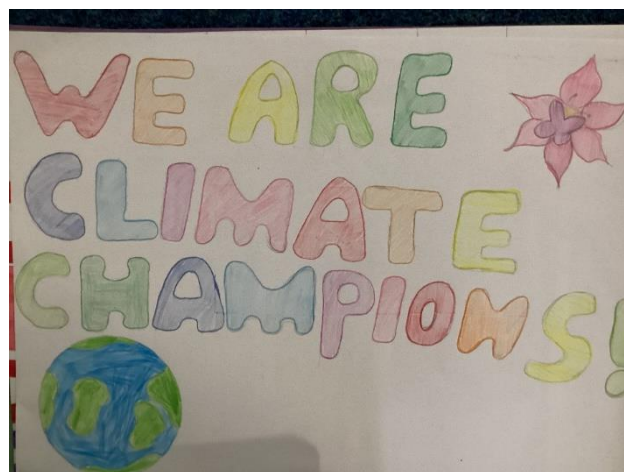 WE ARE
CLIMATE
CHAMPIONS!